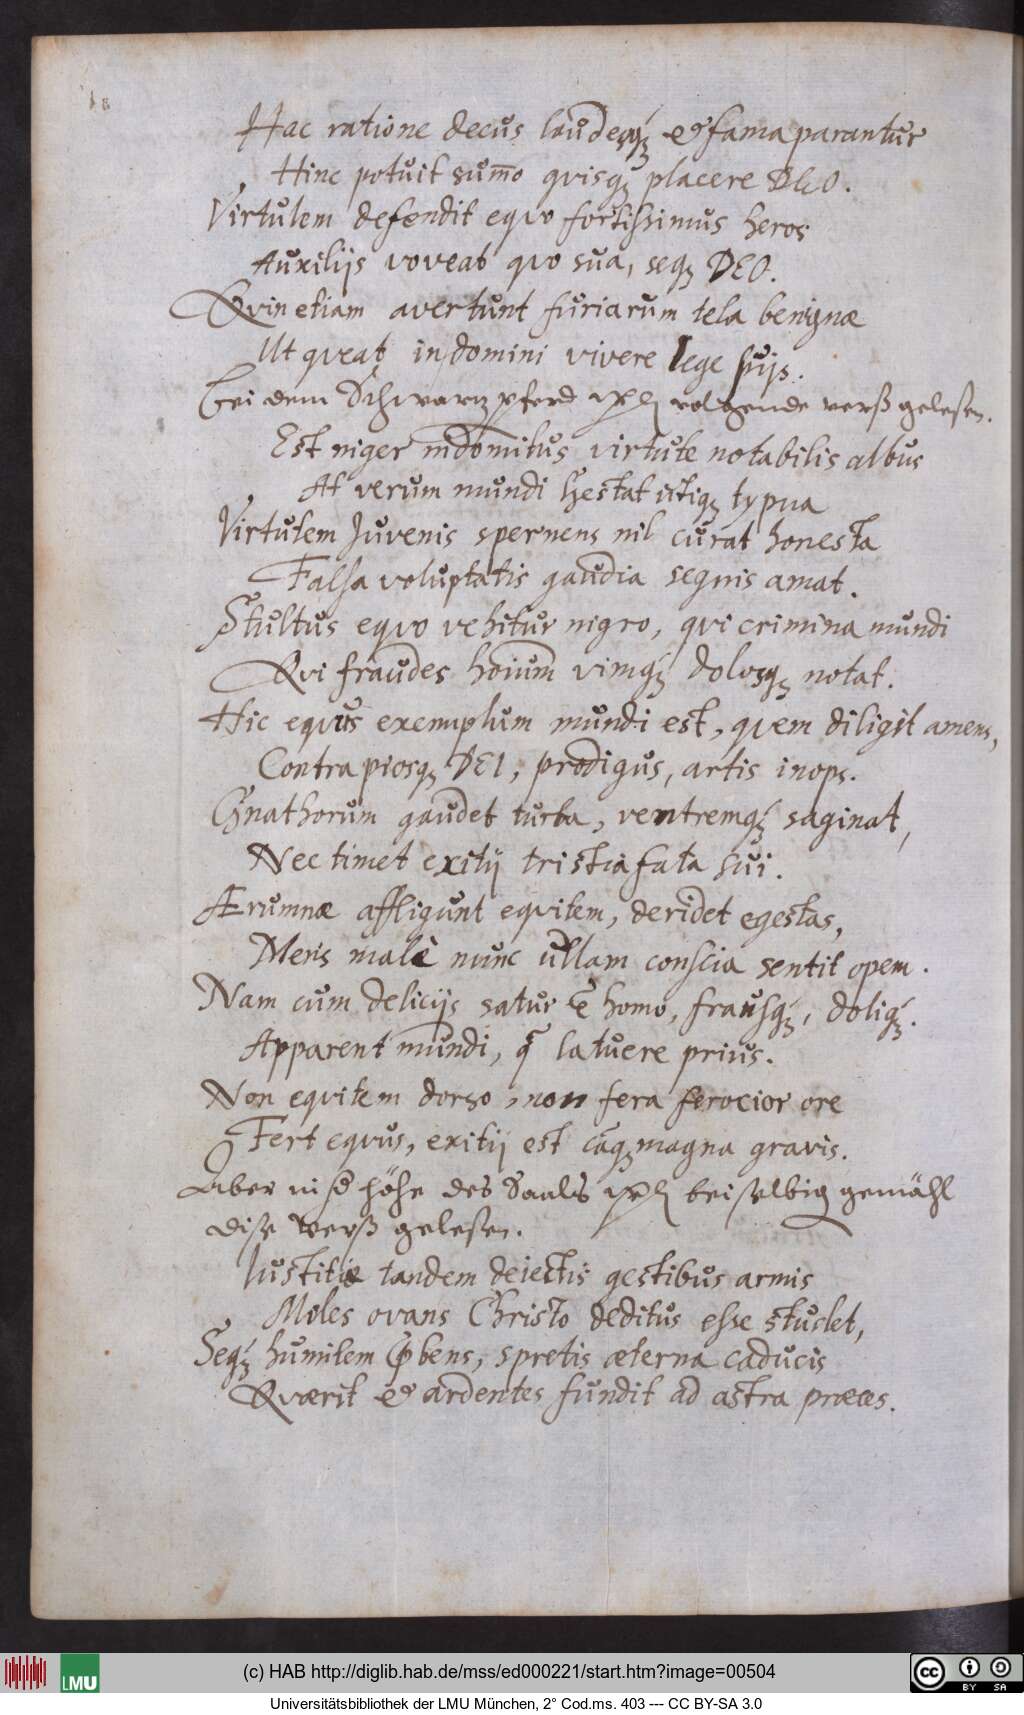 Hac ratione decus laudesq́ꝫ & fama parantur
Hinc potuit sum̄o quisqꝫ placere DEO.
Virtutem defendit equo fortissimus heros
Auxilijs voveat quo sua, seqꝫ DEO.
Qvin etiam avertunt furiarum tela benignæ
Ut queat in domini vivere lege suijs.
Bei dem Schwartz pferd volgende verß gelesen.
Est niger indomitus virtute notabilis albus
At verum mundi gestat utiqꝫ typua
Virtutem Juvenis spernens nil curat honesta
Falsa voluptatis gaudia segnis amat.
Stultus equo vehitur nigro, qui crimina mundi
Qvi fraudes hoium vimq́ꝫ dolosqꝫ notat.
Hic equus exemplum mundi est, quem diligit amens,
Contra piosqꝫ DEI, prodigus, artis inops.
Gnathorum gaudet turba, ventremq́ꝫ saginat,
Nec timet exitij tristia fata sui.
Ærumnæ affligunt equitem, deridet egestas,
Mens malè nunc ullam conscia sentit opem.
Nam cum delicijs satur ē homo, frausq́ꝫ, doliq́ꝫ.
Apparent mundi, q̄ latuere prius.
Non equitem dorso, non fera ferocior ore
Fert equus, exitij est magna gravis.
Aber in höhe des Saals bei selbig gemähl
dise verß gelesen.
Iustitiæ tandem deiectis gestibus armis
Moles ovans Christo deditus esse studet,
Seq́ꝫ humilem ꝓbens, spretis æterna caducis
Qværit & ardentes fundit ad astra præces.
(c) HAB http://diglib.hab.de/mss/ed000221/start.htm?image=00504
LMU
cc BY SA
Universitätsbibliothek der LMU München, 2° Cod.ms. 403 --- CC BY-SA 3.0